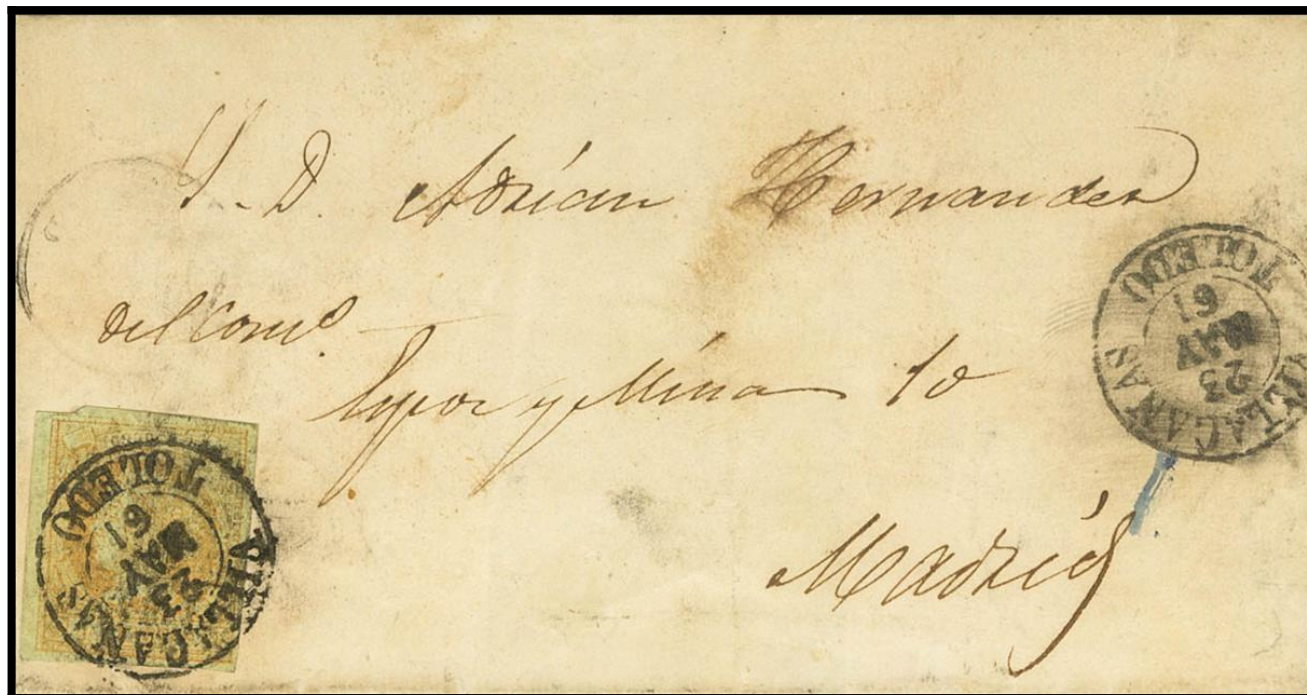 S. D. Adrian Hernandez
del Como
Espoz y Mina 10
Madrid
VILLACAÑAS
23
MAY
61
TOLEDO
VILLACAÑAS
23
MAY
61
TOLEDO